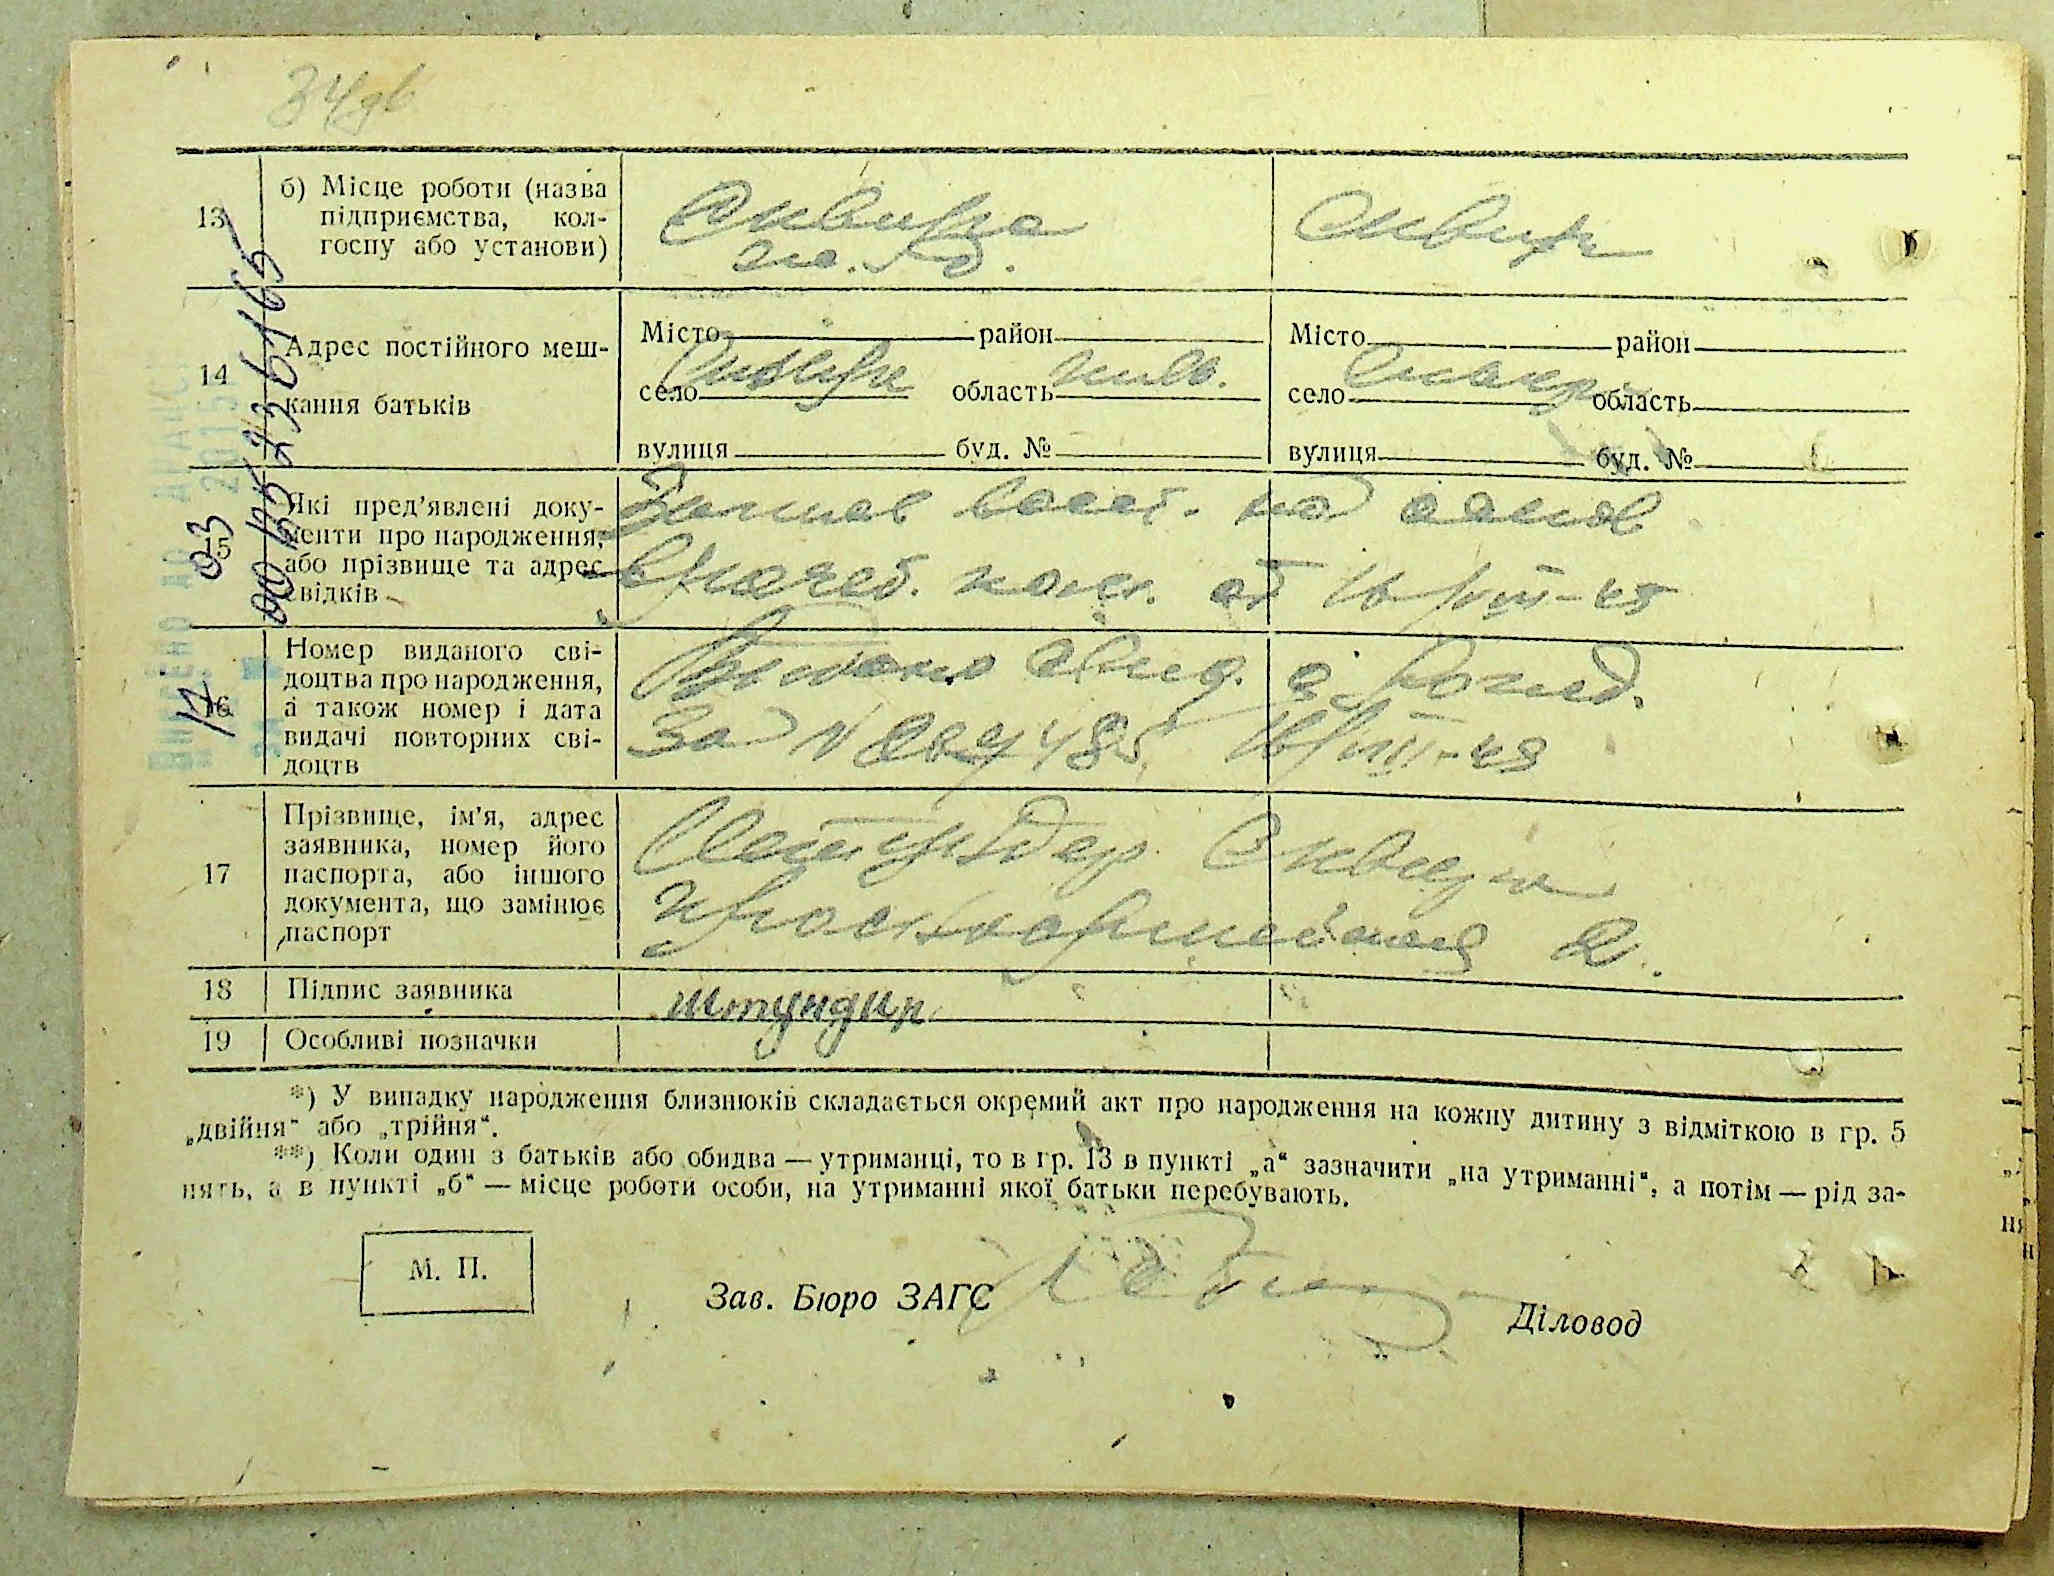 34
13
б) Місце роботи (назва
підприємства, кол-
госпу або установи)
Сквира
Сквир
14
Адрес постійного меш-
кання батьків
Місто район
село Сквир область киев.
вулиця буд. №
Місто район
село область
вулиця буд. №
15
Які пред'явлені доку-
менти про народження,
або прізвище та адрес
свідків
Запись восст. на основ
врачеб. ком. от 16/VIII-45
16
Номер виданого сві-
доцтва про народження,
а також номер і дата
видачі повторних сві-
доцтв
Выдано свид. о рожд.
за N 16/VIII-45
17
Прізвище, ім'я, адрес
заявника, номер його
паспорта, або іншого
документа, що замінює
паспорт
Сквира
красноармейская 2.
18
Підпис заявника
штундир
19
Особливі позначки
*) У випадку народження близнюків складається окремий акт про народження на кожну дитину з відміткою в гр. 5
„двійня“ або „трійня“.
**) Коли один з батьків або обидва — утриманці, то в гр. 13 в пункті „а“ зазначити „на утриманні“, а потім — рід за-
нять, а в пункті „б“ — місце роботи особи, на утриманні якої батьки перебувають.
М. П.
Зав. Бюро ЗАГС
Діловод